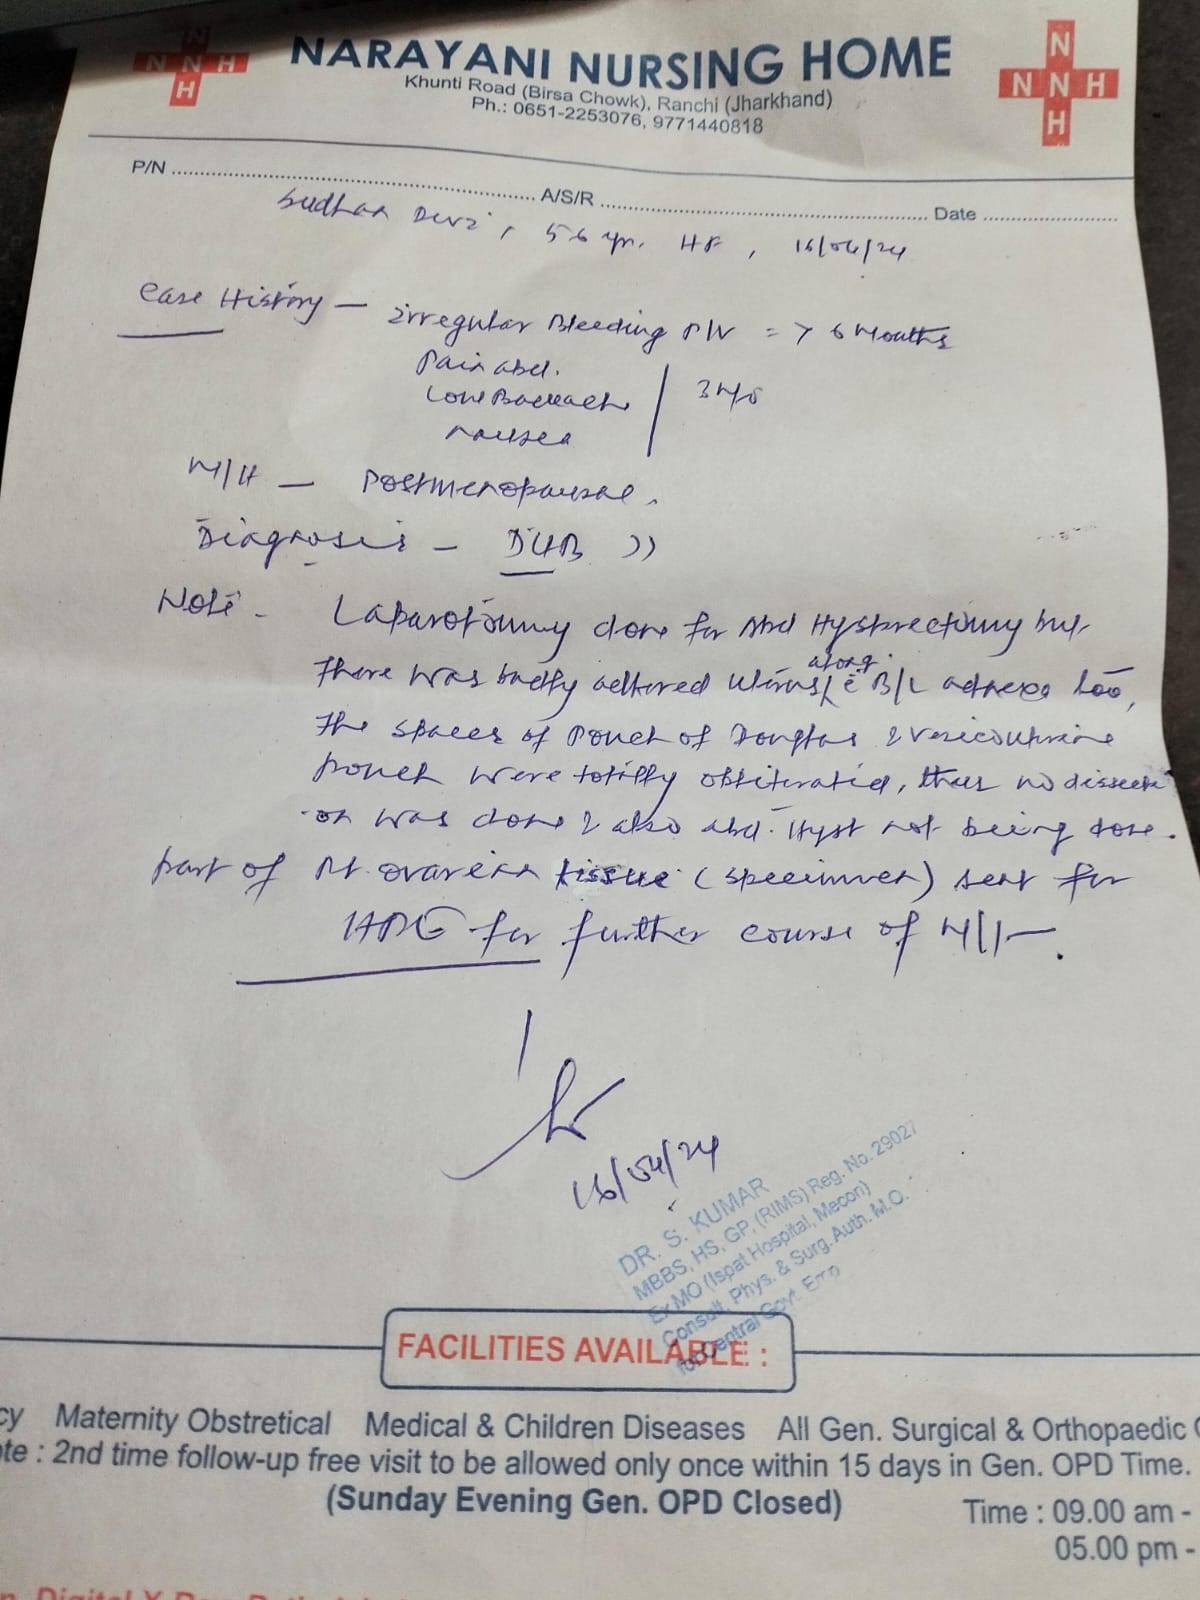 N
N N H
H
NARAYANI NURSING HOME
Khunti Road (Birsa Chowk), Ranchi (Jharkhand)
Ph.: 0651-2253076, 9771440818
N
N N H
H
P/N ........ A/S/R ........ Date ........
Sudhan Devi, 56 yr. HF, 16/04/24
Case History — Irregular Bleeding P/V = > 6 Months
Pain abd.
Low Backache 3 M/S
nausea
M/H — Postmenopausal.
Diagnosis — DUB
Note - Laparotomy done for Abd Hysterectomy but
there was badly adhered uterus along c̄ B/L adnexa too,
the spaces of Pouch of Douglas & vesicouterine
pouch were totally obliterated, thus no dissecti
-on was done & also abd. Hyst not being done.
part of Rt ovarian tissue (specimen) sent for
HPE for further course of M/-
16/04/24
DR. S. KUMAR
MBBS, HS, GP, (RIMS) Reg. No. 29027
Ex MO (Ispat Hospital, Mecon)
Consult. Phys. & Surg. Auth. M.O.
for Central Govt. Emp
FACILITIES AVAILABLE :
cy Maternity Obstretical Medical & Children Diseases All Gen. Surgical & Orthopaedic
te : 2nd time follow-up free visit to be allowed only once within 15 days in Gen. OPD Time.
(Sunday Evening Gen. OPD Closed) Time : 09.00 am -
05.00 pm -
Digital X-Ray